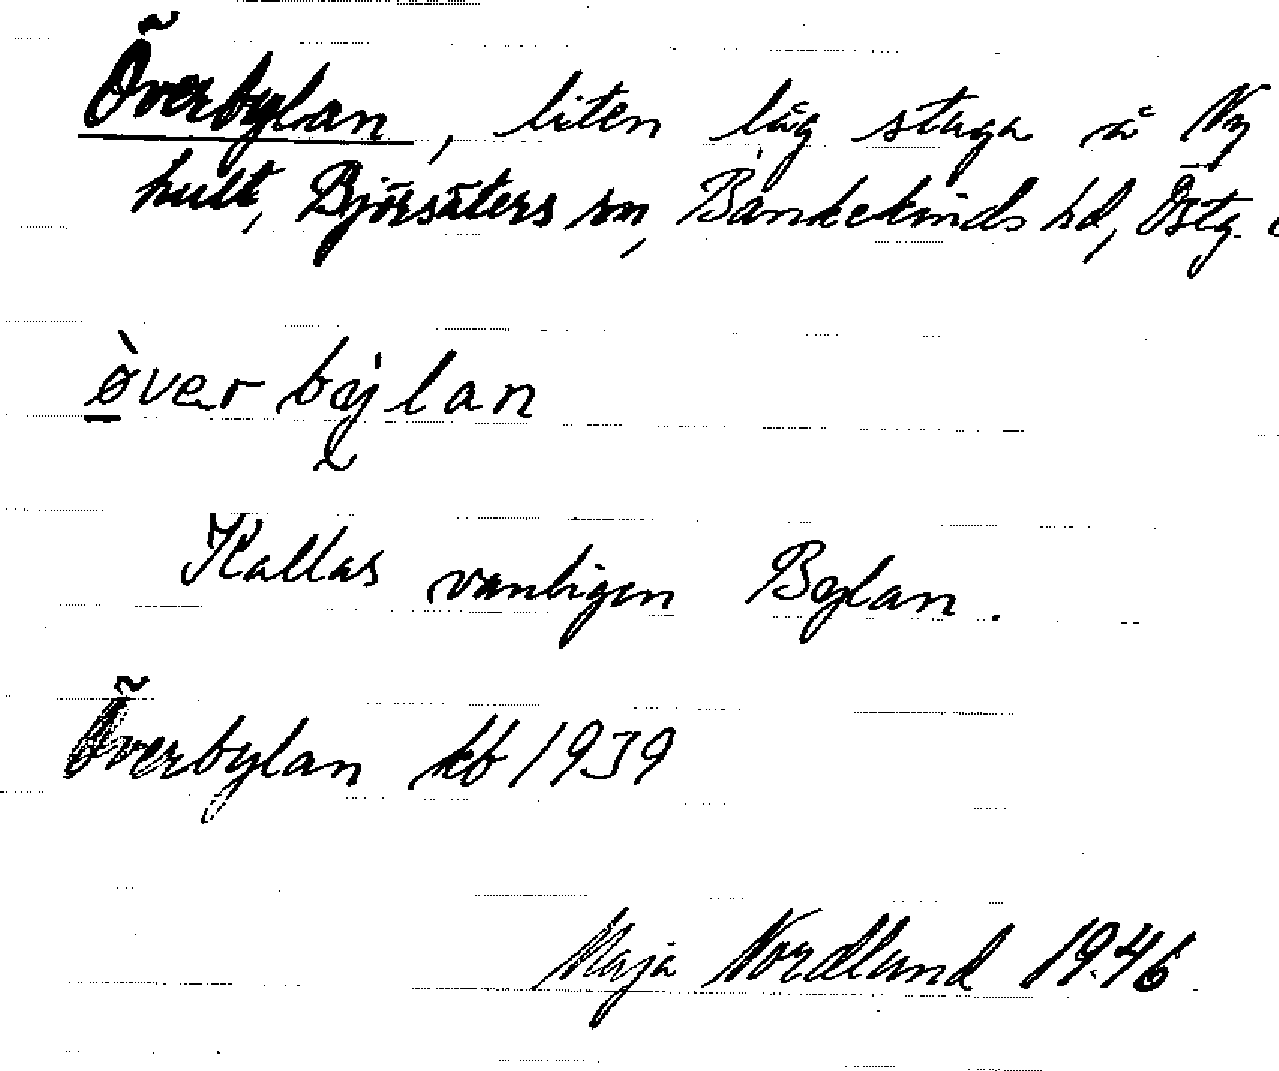 Överbylan, liten låg stuga å Ny
hult, Björsäters sn, Bankekinds hd, Östg.
Kallas vanligen Bylan.
Överbylan kb 1939
Maja Nordlund 1946